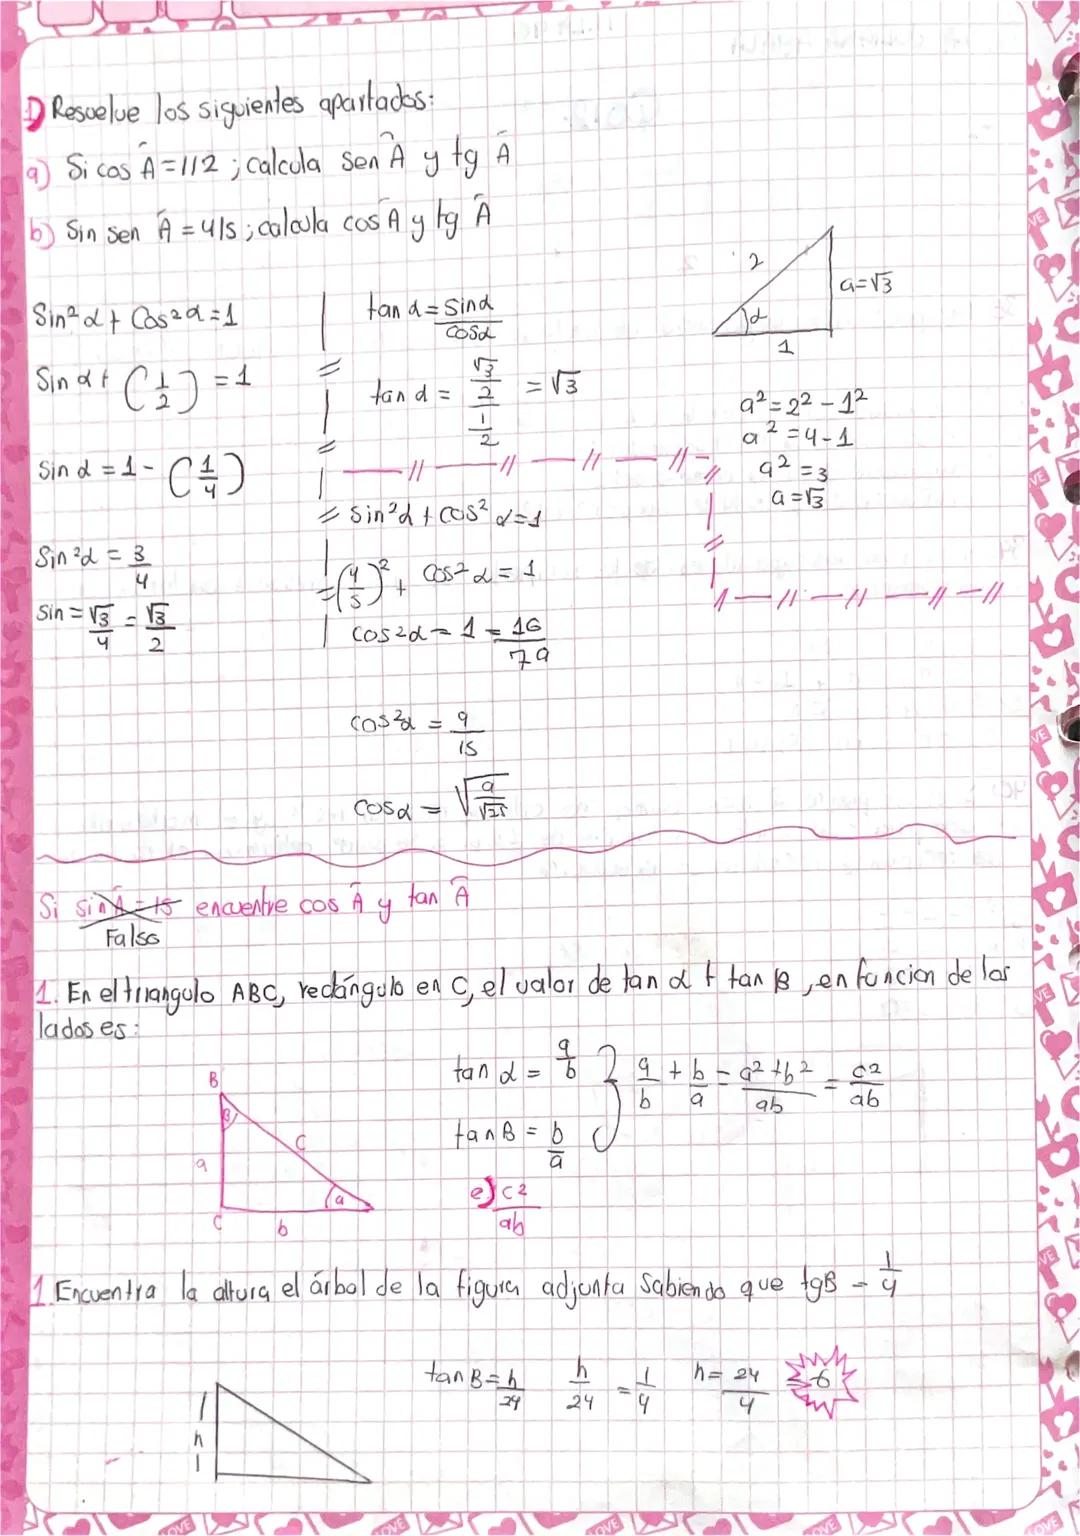 1) Resuelve los siguientes apartados:
a) Si cos Â=1/2 ; calcula sen Â y tg Â
b) Sin sen Â = 4/5 ; calcula cos Â y tg Â
Sin²α + Cos²α = 1
Sin α + (1/2) = 1
Sin α = 1 - (1/4)
Sin²α = 3/4
Sin = √3/4 = √3/2
tan α = Sinα/cosα
tan α = √3/2 / 1/2 = √3
2
a=√3
α
1
a² = 2² - 1²
a² = 4 - 1
a² = 3
a = √3
Sin²α + cos² α = 1
(4/5)² + cos² α = 1
cos2α = 1 = 16/79
cos²α = 9/15
cosα = √9/√25
Si sin Â = 15 encuentre cos Â y tan Â
Falso
1. En el triangulo ABC, rectángulo en C, el valor de tan α + tan B, en funcion de los
lados es:
B
B
c
a
a
C
b
tan α = a/b
tan B = b/a
a/b + b/a = a²+b²/ab = c2/ab
e) c2/ab
1. Encuentra la altura el árbol de la figura adjunta Sabiendo que tgB = 1/4
h
tan B = h/24
h/24 = 1/4
h = 24/4 = 6
LOVE
LOVE
LOVE
LOVE